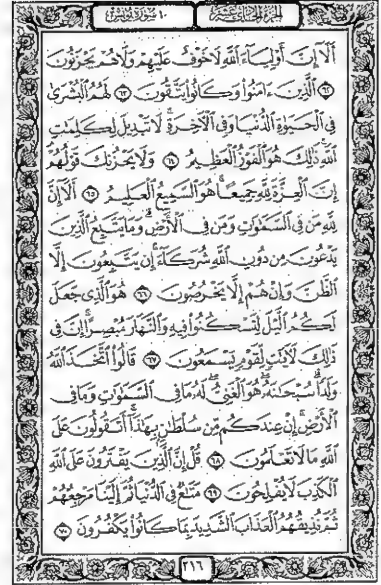 الجزء الحادي عشر ١٠ سورة يونس
أَلَآ إِنَّ أَوْلِيَآءَ ٱللَّهِ لَا خَوْفٌ عَلَيْهِمْ وَلَا هُمْ يَحْزَنُونَ
٦٢ ٱلَّذِينَ ءَامَنُوا۟ وَكَانُوا۟ يَتَّقُونَ ٦٣ لَهُمُ ٱلْبُشْرَىٰ
فِى ٱلْحَيَوٰةِ ٱلدُّنْيَا وَفِى ٱلْءَاخِرَةِ ۚ لَا تَبْدِيلَ لِكَلِمَٰتِ
ٱللَّهِ ۚ ذَٰلِكَ هُوَ ٱلْفَوْزُ ٱلْعَظِيمُ ٦٤ وَلَا يَحْزُنكَ قَوْلُهُمْ ۘ
إِنَّ ٱلْعِزَّةَ لِلَّهِ جَمِيعًا ۚ هُوَ ٱلسَّمِيعُ ٱلْعَلِيمُ ٦٥ أَلَآ إِنَّ
لِلَّهِ مَن فِى ٱلسَّمَٰوَٰتِ وَمَن فِى ٱلْأَرْضِ ۗ وَمَا يَتَّبِعُ ٱلَّذِينَ
يَدْعُونَ مِن دُونِ ٱللَّهِ شُرَكَآءَ ۚ إِن يَتَّبِعُونَ إِلَّا
ٱلظَّنَّ وَإِنْ هُمْ إِلَّا يَخْرُصُونَ ٦٦ هُوَ ٱلَّذِى جَعَلَ
لَكُمُ ٱلَّيْلَ لِتَسْكُنُوا۟ فِيهِ وَٱلنَّهَارَ مُبْصِرًا ۚ إِنَّ فِى
ذَٰلِكَ لَءَايَٰتٍ لِّقَوْمٍ يَسْمَعُونَ ٦٧ قَالُوا۟ ٱتَّخَذَ ٱللَّهُ
وَلَدًا ۗ سُبْحَٰنَهُۥ ۖ هُوَ ٱلْغَنِىُّ ۖ لَهُۥ مَا فِى ٱلسَّمَٰوَٰتِ وَمَا فِى
ٱلْأَرْضِ ۚ إِنْ عِندَكُم مِّن سُلْطَٰنٍۭ بِهَٰذَآ ۚ أَتَقُولُونَ عَلَى
ٱللَّهِ مَا لَا تَعْلَمُونَ ٦٨ قُلْ إِنَّ ٱلَّذِينَ يَفْتَرُونَ عَلَى ٱللَّهِ
ٱلْكَذِبَ لَا يُفْلِحُونَ ٦٩ مَتَٰعٌ فِى ٱلدُّنْيَا ثُمَّ إِلَيْنَا مَرْجِعُهُمْ
ثُمَّ نُذِيقُهُمُ ٱلْعَذَابَ ٱلشَّدِيدَ بِمَا كَانُوا۟ يَكْفُرُونَ ٧٠
٢١٦